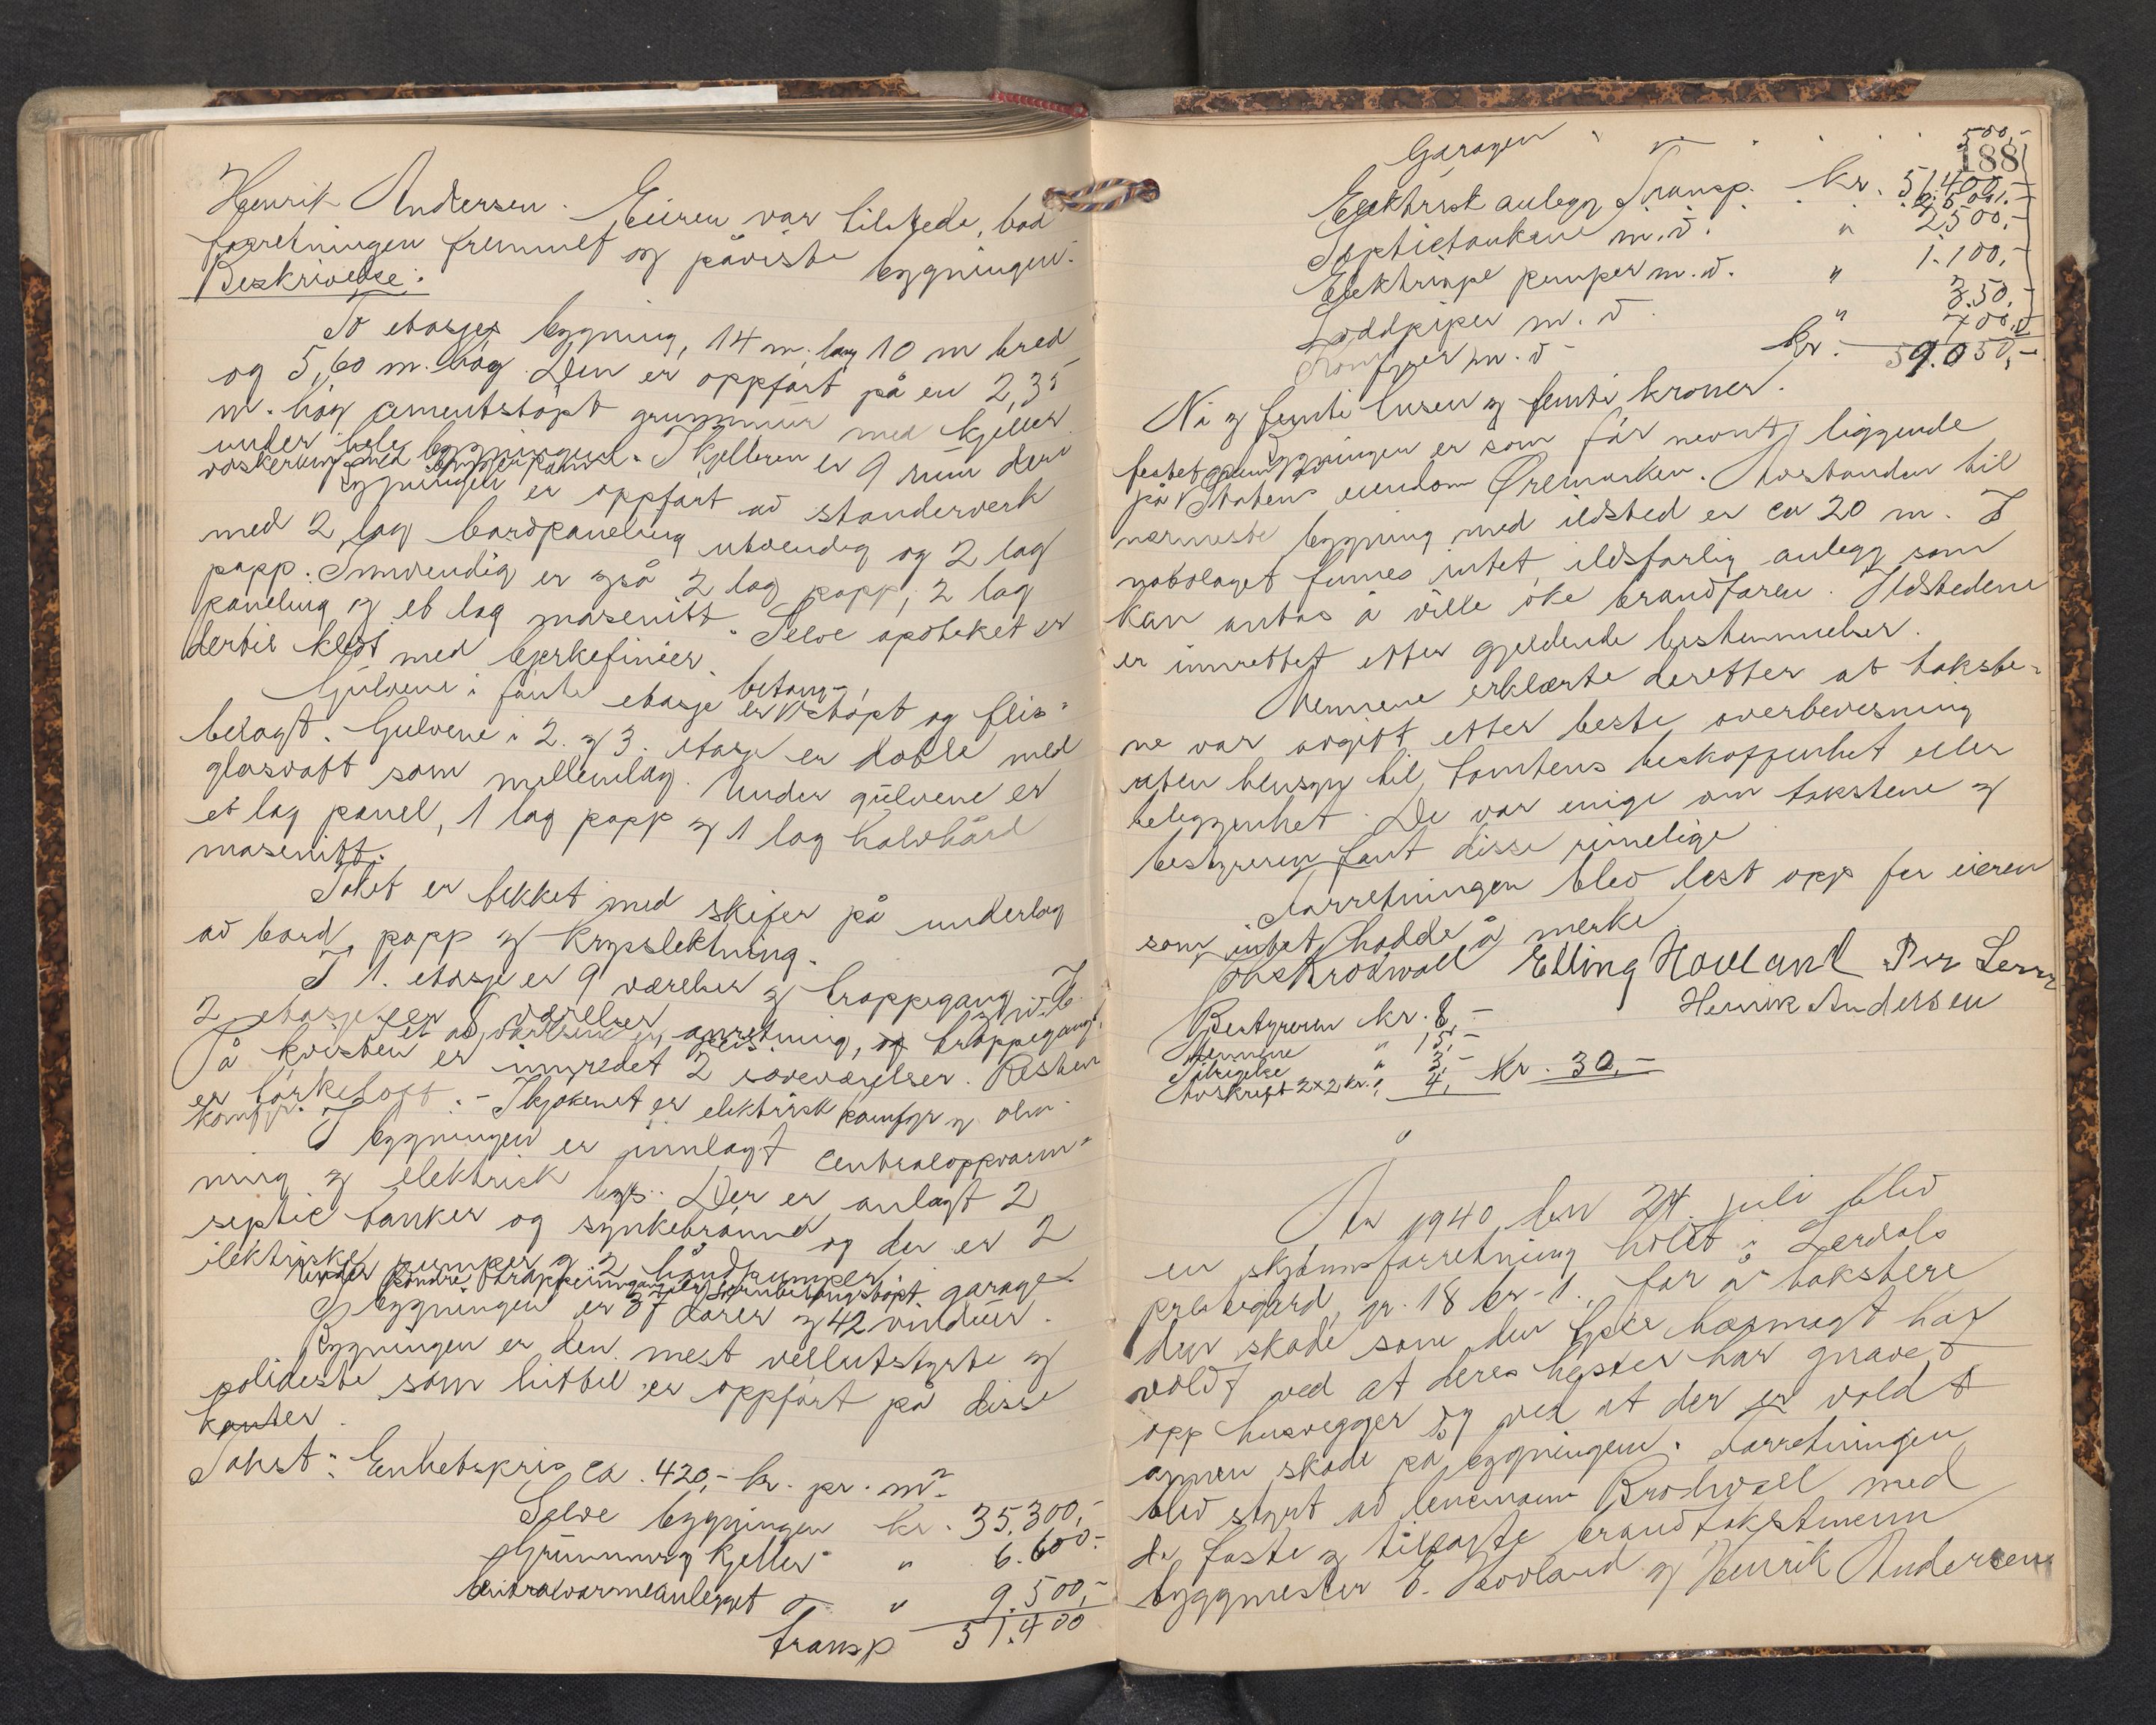 Henrik Andersen. Eieren var tilstede, bad
forretningen fremmet og påviste bygningen.
Beskrivelse:
To etasjes bygning, 14 m. lang 10 m bred
og 5,60 m. høg. Den er oppført på en 2,35
m. høg cementstøpt grunnmur med kjeller
under hele bygningen. I kjelleren er 9 rum derav
vaskerum med bryggepanne.
Bygningen er oppført av standerverk
med 2 lag bordpaneling utvendig og 2 lag
papp. Innvendig er også 2 lag papp, 2 lag
paneling og et lag masenitt. Selve apoteket er
dertil kledt med bjerkefinier.
Gulvene i første etasje er betong-støpt og flis-
belagt. Gulvene i 2. og 3. etasje er doble med
glasvatt som mellemlag. Under gulvene er
et lag panel, 1 lag papp og 1 lag halvhård
masenitt.
Taket er tekket med skifer på underlag
av bord, papp og krysslektning.
I 1. etasje er 9 værelser og trappegang. I
2 etasje er 8 værelser og w.c.
et av værelsene er anretning, trappegang.
På kvisten er innredet 2 soveværelser. Resten
er tørkeloft. - I kjøkenet er elektrisk komfyr og alm.
komfyr.
I bygningen er innlagt centraloppvarm-
ning og elektrisk lys. Der er anlagt 2
septic tanker og synkebrønn og der er 2
elektriske pumper og 2 håndpumper.
Under søndre trappeinngang er jernbetongstøpt garage
I bygningen er 37 dører og 42 vinduer.
Bygningen er den mest velutstyrte og
solideste som hittil er oppført på disse
kanter.
Takst: Enhetspris ca. 420,- kr. pr. m²
Selve bygningen kr. 35,300,-
Grunnmur og kjeller " 6.600.-
Centralvarmeanlegget " 9.500,-
transp 51.400
188
Garagen 500,-
Transp. kr. 51.400,-
Elektrisk anlegg 2.500,-
Septictankene m.v. " 2,500,-
Elektriske pumper m.v. " 1.100,-
Loddpiper m.v. " 350,-
Komfyrer m.v. 700,-
kr. 59.050,-
Ni og femti tusen og femti kroner.
Bygningen er som før nevnt liggende
på festet grunn
på Statens eiendom Øremarken. Avstanden til
nærmeste bygning med ildsted er ca 20 m. I
nabolaget finnes intet ildsfarlig anlegg som
kan antas å ville øke brandfaren. Ildstedene
er innrettet etter gjeldende bestemmelser.
Mennene erklærte deretter at takste-
ne var avgitt etter beste overbevisning
uten hensyn til tomtens beskaffenhet eller
beliggenhet. De var enige om takstene og
bestyreren fant disse rimelige
Forretningen blev lest opp for eieren
som intet hadde å merke
Brodwall Elling Hovland Per
Henrik Andersen
Bestyreren kr. 8,-
Mennene " 15,-
" 3,-
Avskrift 2x2 kr. " 4, kr. 30,-
År 1940 den 24. juli blev
en skjønnsforretning holdt i Lerdals
prestegård, gr. 18 br. 1., for å takstere
den skade som den tyske hærmagt har
voldt ved at deres hester har gnavet
opp husvegger og ved at der er voldt
annen skade på bygningene. Forretningen
blev styrt av lensmann Brodwall med
de faste og tilsatte brandtakstmenn
byggmester E. Hovland og Henrik Andersen